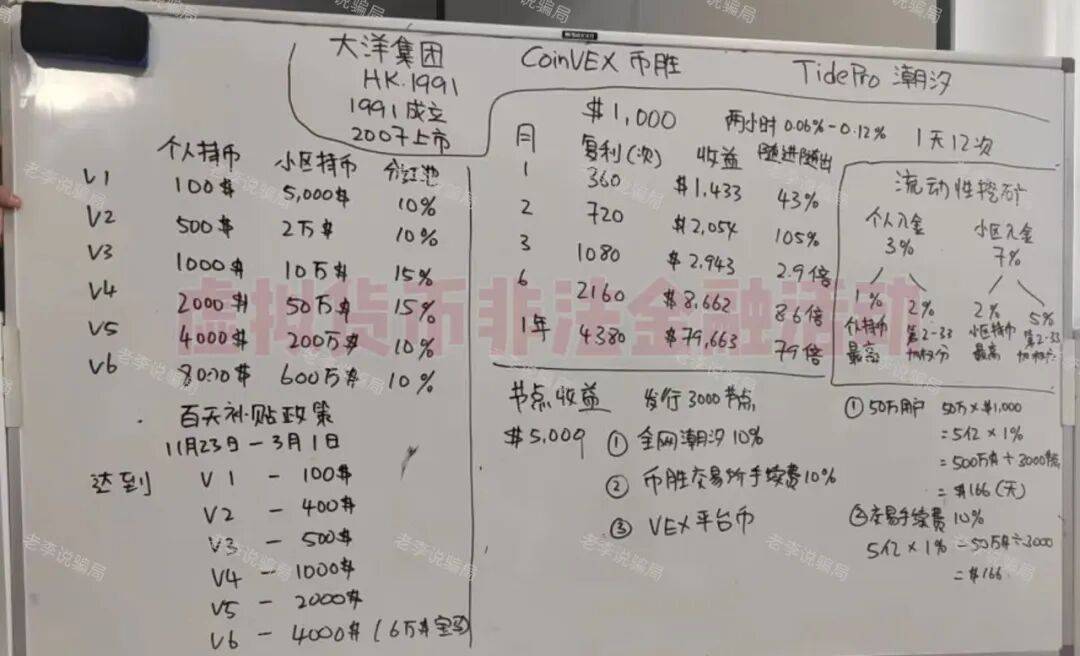 大洋集团
HK.1991
1991成立
2007上市
CoinVEX 币胜
TidePro 潮汐
个人持币 小区持币 分红池
V1 100$ 5,000$ 10%
V2 500$ 2万$ 10%
V3 1000$ 10万$ 15%
V4 2000$ 50万$ 15%
V5 4000$ 200万$ 10%
V6 8000$ 600万$ 10%
百天补贴政策
11月23日-3月1日
达到 V1 - 100$
V2 - 400$
V3 - 500$
V4 - 1000$
V5 - 2000$
V6 - 4000$ (6万$宝马)
$1,000 两小时 0.06%-0.12% 1天12次
月 复利(次) 收益 随进随出
1 360 $1.433 43%
2 720 $2,054 105%
3 1080 $2.943 2.9倍
6 2160 $8,662 8.6倍
1年 4380 $79,663 79倍
流动性挖矿
个人入金 小区入金
3% 7%
1% 2% 2% 5%
个人持币 第2-33 小区持币 第2-33
最高 加权分 最高
节点收益 发行3000节点
$5,009 ① 全网潮汐10%
② 币胜交易所手续费10%
③ VEX平台币
① 50万用户 50万×$1,000
=5亿×1%
=500万$÷3000节点
=$166(天)
②交易手续费10%
5亿×1% -50万$÷3000
=$166
虚拟货币非法金融活动
老李说骗局